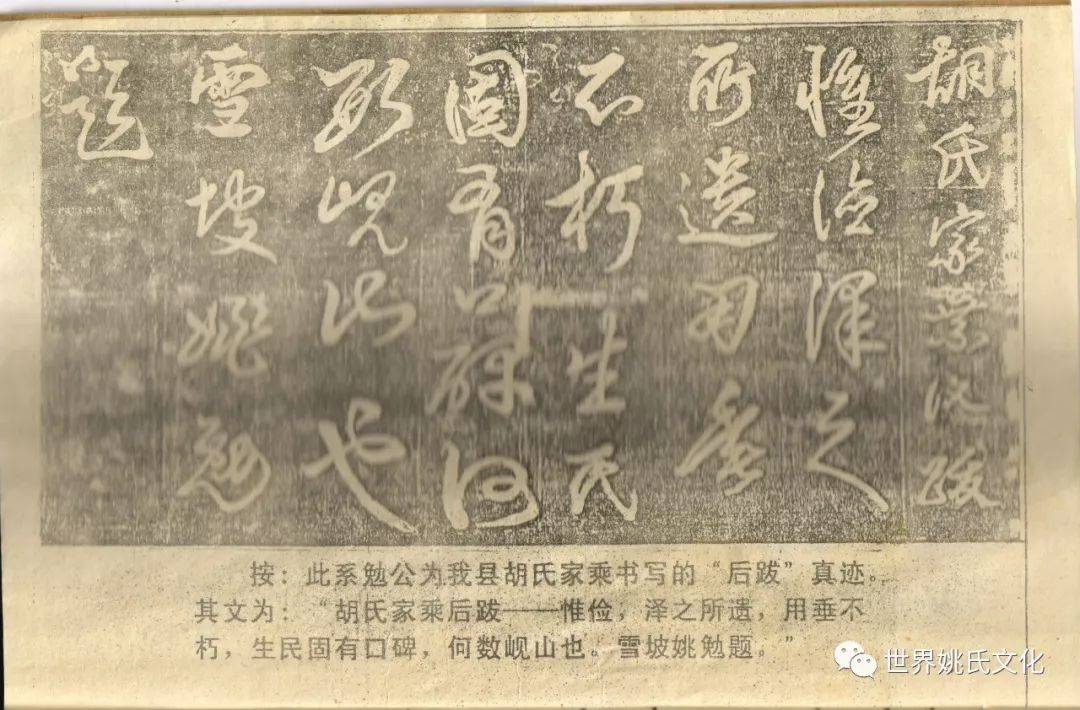 胡氏家乘後跋
惟儉澤之
所遺用垂
不朽生民
固有口碑何
數峴此也
雪坡姚勉
題
按：此系勉公为我县胡氏家乘书写的“后跋”真迹。
其文为：“胡氏家乘后跋——惟俭，泽之所遗，用垂不
朽，生民固有口碑，何数岘山也。雪坡姚勉题。”
世界姚氏文化